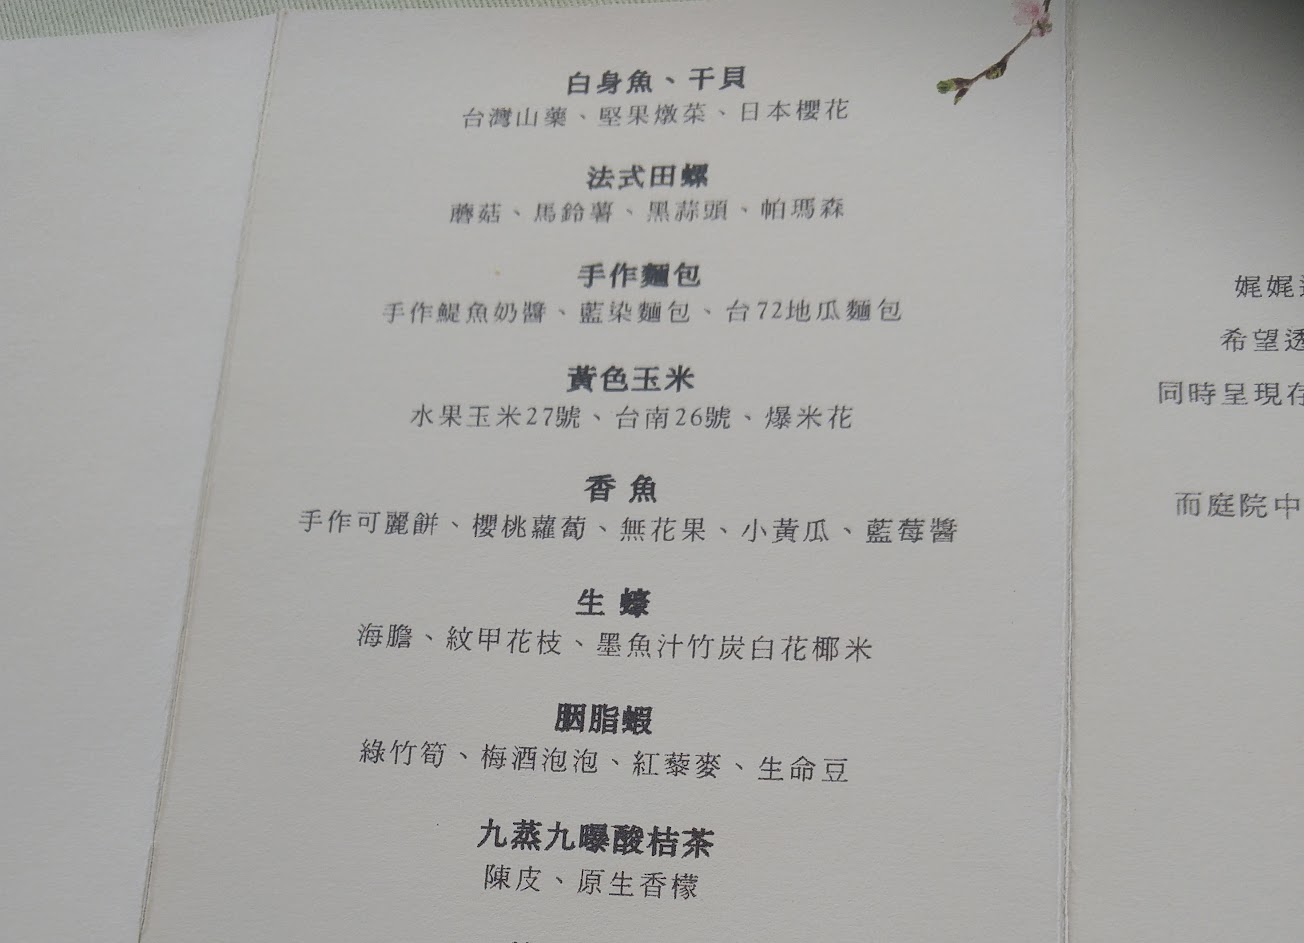 白身魚、干貝
台灣山藥、堅果燉菜、日本櫻花
法式田螺
蘑菇、馬鈴薯、黑蒜頭、帕瑪森
手作麵包
手作鯷魚奶醬、藍染麵包、台72地瓜麵包
黃色玉米
水果玉米27號、台南26號、爆米花
香魚
手作可麗餅、櫻桃蘿蔔、無花果、小黃瓜、藍莓醬
生蠔
海膽、紋甲花枝、墨魚汁竹炭白花椰米
胭脂蝦
綠竹筍、梅酒泡泡、紅藜麥、生命豆
九蒸九曝酸桔茶
陳皮、原生香檬
娓娓
希望透
同時呈現在
而庭院中